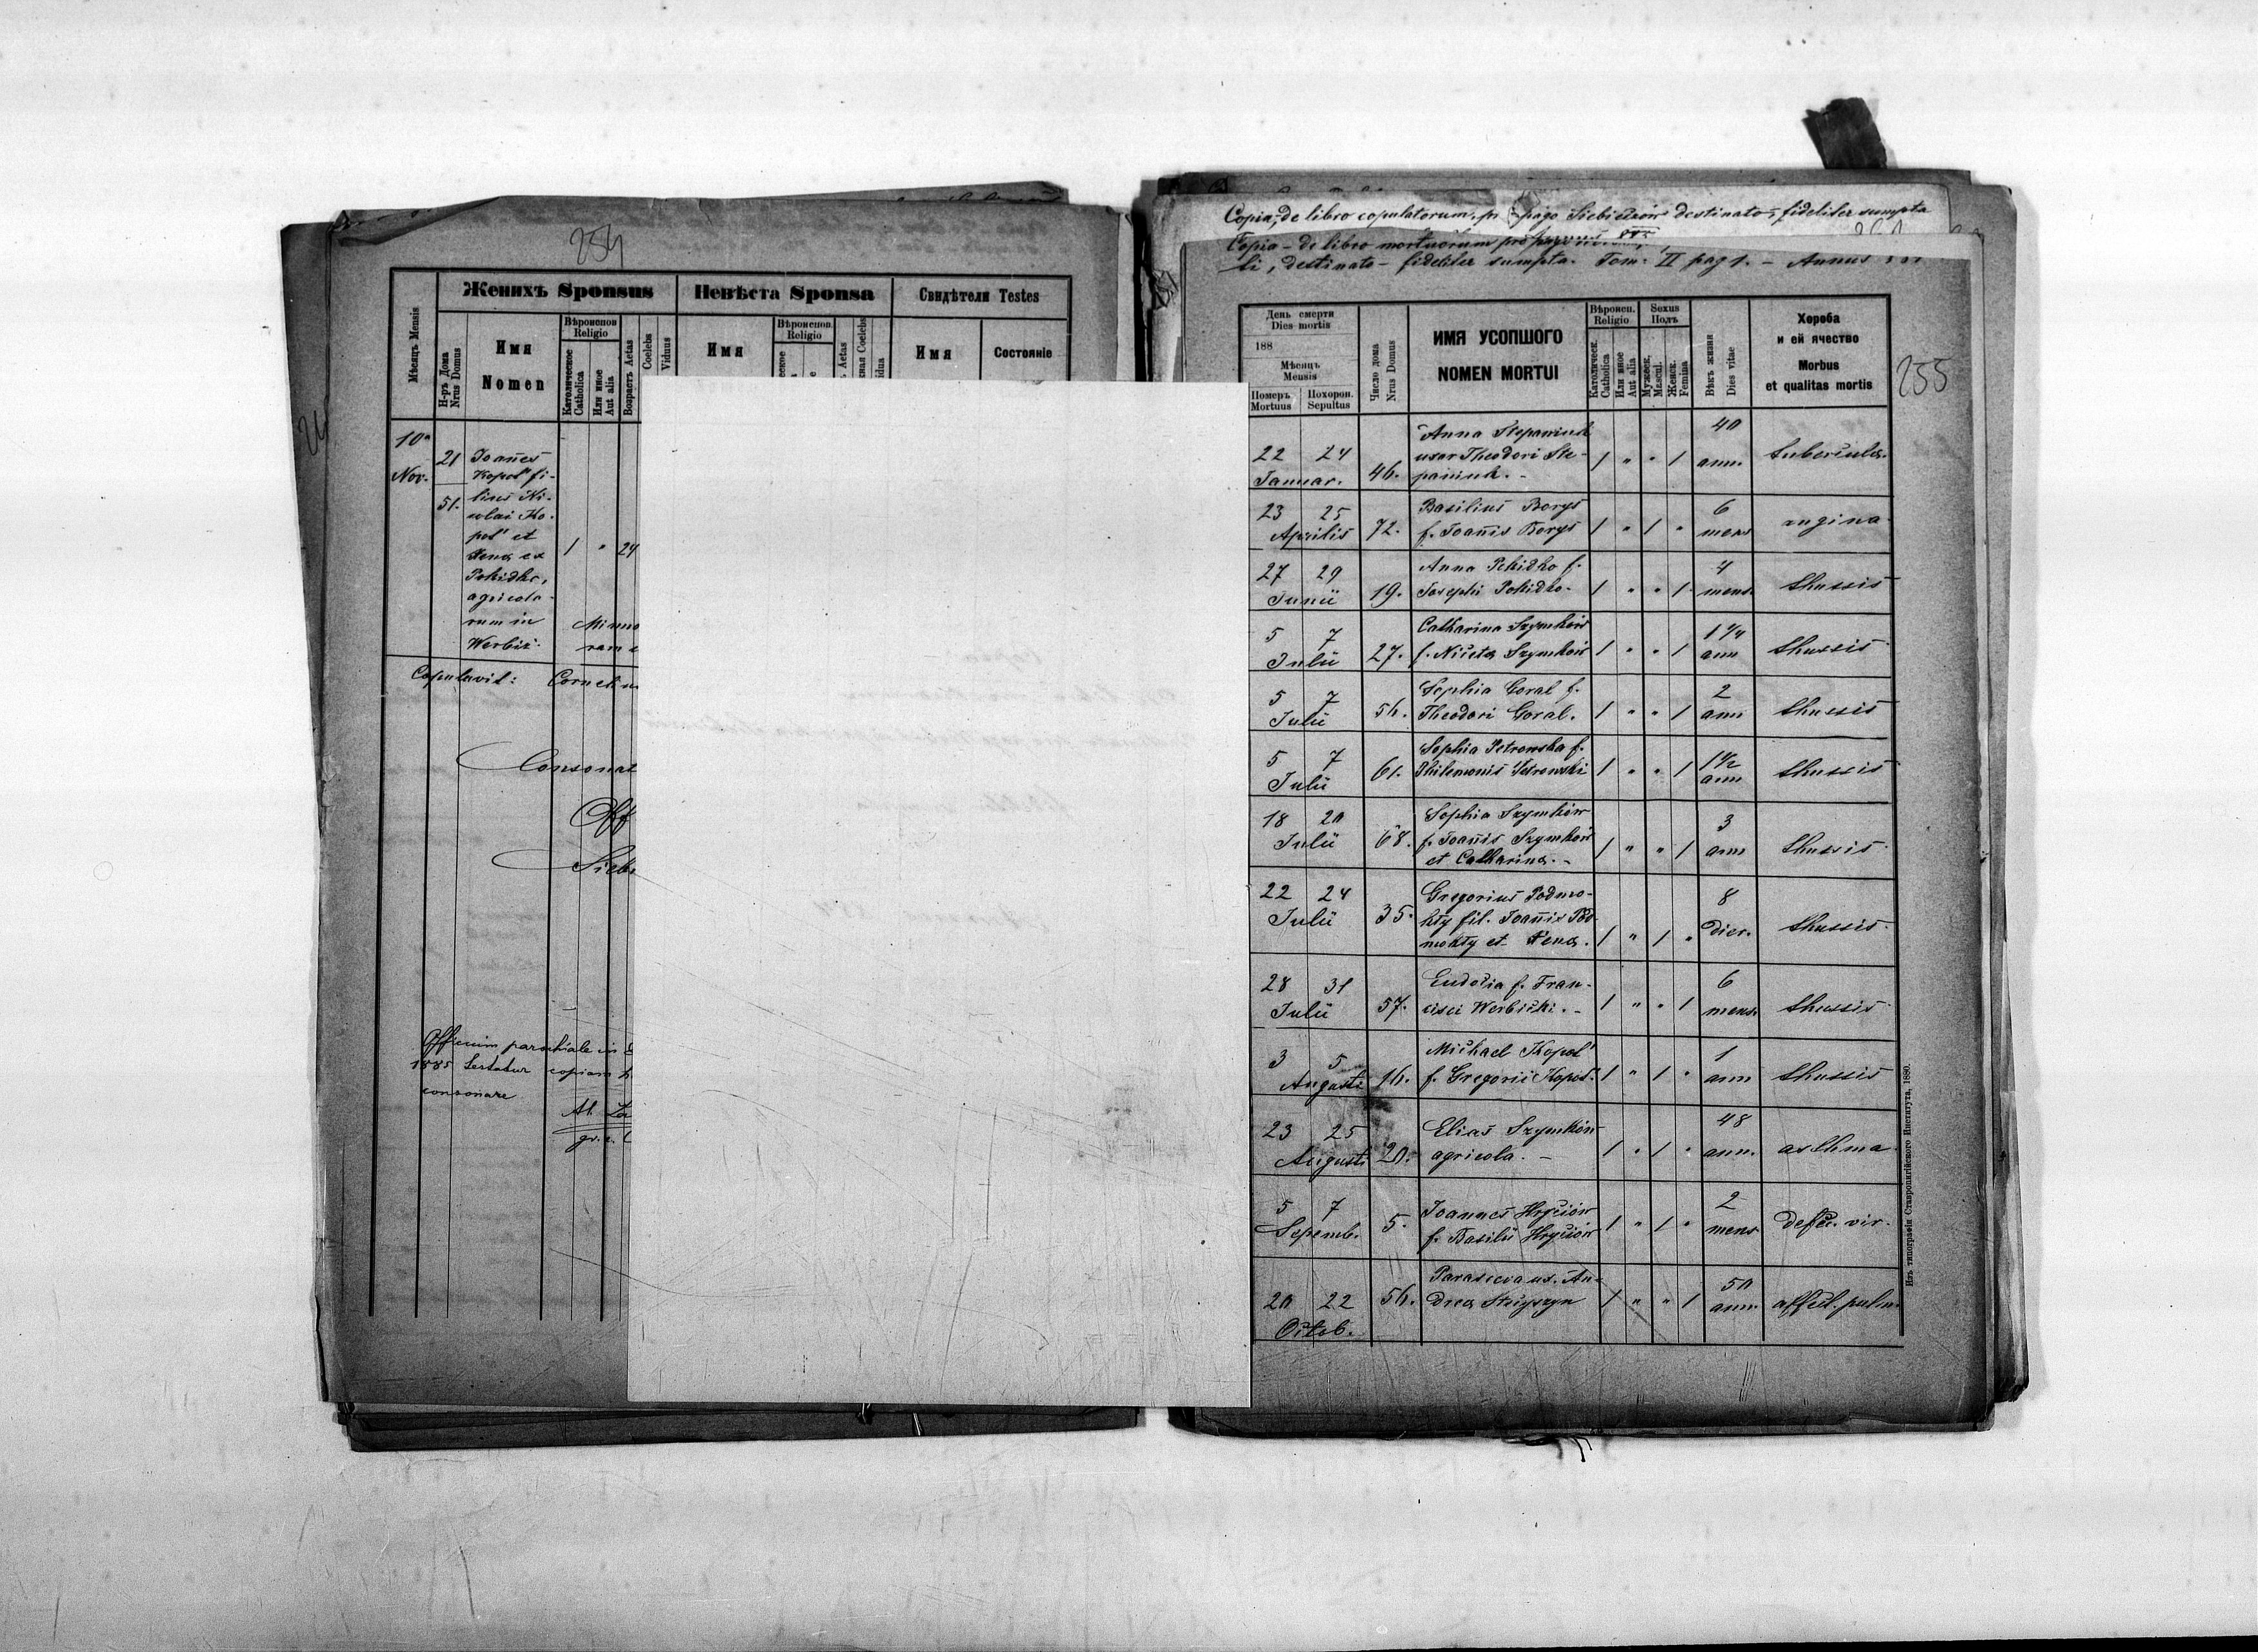 254
Женихъ Sponsus
Невѣста Sponsa
Свидѣтели Testes
Мѣсяцъ Mensis
Н-ръ Дома
Nrus Domus
Имя
Nomen
Вѣроиспов
Religio
Католическое
Catholica
Или иное
Aut alia
Возрастъ Aetas
Coelebs
Viduus
Имя
Вѣроиспов.
Religio
Aetas
Coelebs
Имя
Состояніе
10a
Nov.
21
51.
Joannes
Kopot' fi-
lius Ni-
colai Ko-
pot' et
Xenæ ex
Pohidko,
agricola-
rum in
Werbiż.
1 " 24
Copulavit:
Consonat
Off
Officium parochiale in
1885 testatur copiam
consonare
Copia, de libro copulatorum, destinato, fideliter sumpta
Copia - de libro mortuorum pro pago
li, destinato - fideliter sumpta. Tom. II pag 1. - Annus
255
День смерти
Dies mortis
188
Мѣсяцъ
Mensis
Померъ
Mortuus
Похорон.
Sepultus
Число дома
Nrus Domus
ИМЯ УСОПШОГО
NOMEN MORTUI
Вѣроисп.
Religio
Католическ.
Catholica
Или иное
Aut alia
Sexus
Полъ
Мужеск.
Mascul.
Женск.
Femina
Вѣкъ жизни
Dies vitae
Хороба
и ей ячество
Morbus
et qualitas mortis
22 24
Januar.
46.
Anna Stepaniuk
uxor Theodori Ste-
paniuk. -
1 " " 1
40
ann.
tubercula.
23 25
Aprilis
72.
Basilius Borys
f. Joannis Borys
1 " 1 "
6
mens
angina
27 29
Junii
19.
Anna Pohidko f.
Josephi Pohidko.
1 " " 1
4
mens.
thussis
5 7
Julii
27.
Catharina Szymków
f. Nicetæ Szymków
1 " " 1
1 1/4
ann
thussis
5 7
Julii
56.
Sophia Goral f.
Theodori Goral.
1 " " 1
2
ann
thussis
5 7
Julii
61.
Sophia Petrowska f.
Philemonis Petrowski
1 " " 1
1 1/2
ann
thussis
18 20
Julii
68.
Sophia Szymków
f. Joannis Szymków
et Catharinæ. -
1 " " 1
3
ann
thussis
22 24
Julii
35.
Gregorius Podmo-
kły fil. Joannis Pod-
mokły et Xenæ.
1 " 1 "
8
dier.
thussis.
28 31
Julii
57.
Eudocia f. Fran-
cisci Werbicki. -
1 " " 1
6
mens.
thussis
3 5
Augusti
16.
Michael Kopot'
f. Gregorii Kopot'.
1 " 1 "
1
ann
thussis
23 25
Augusti
20.
Elias Szymków
agricola. -
1 " 1 "
48
ann.
asthma
5 7
Sepemb.
5.
Joannes Hryciów
f. Basilii Hryciów
1 " 1 "
2
mens
defec. vir.
20 22
Octob.
56.
Parasceva ux. An-
1 " " 1
50
ann.
affect. pulm.
Изъ типографіи Ставропигійского Института, 1880.